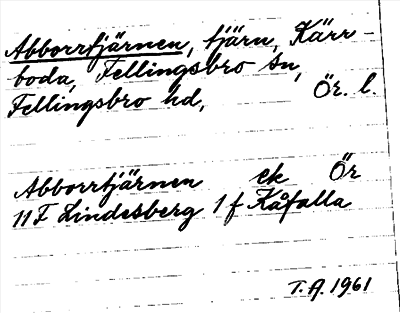 Abborrtjärnen, tjärn, Kärr-
boda, Fellingsbro sn,
Fellingsbro hd, Ör. l.
Abborrtjärnen ek Ör
11 F Lindesberg 1 f Kåfalla
T.A. 1961